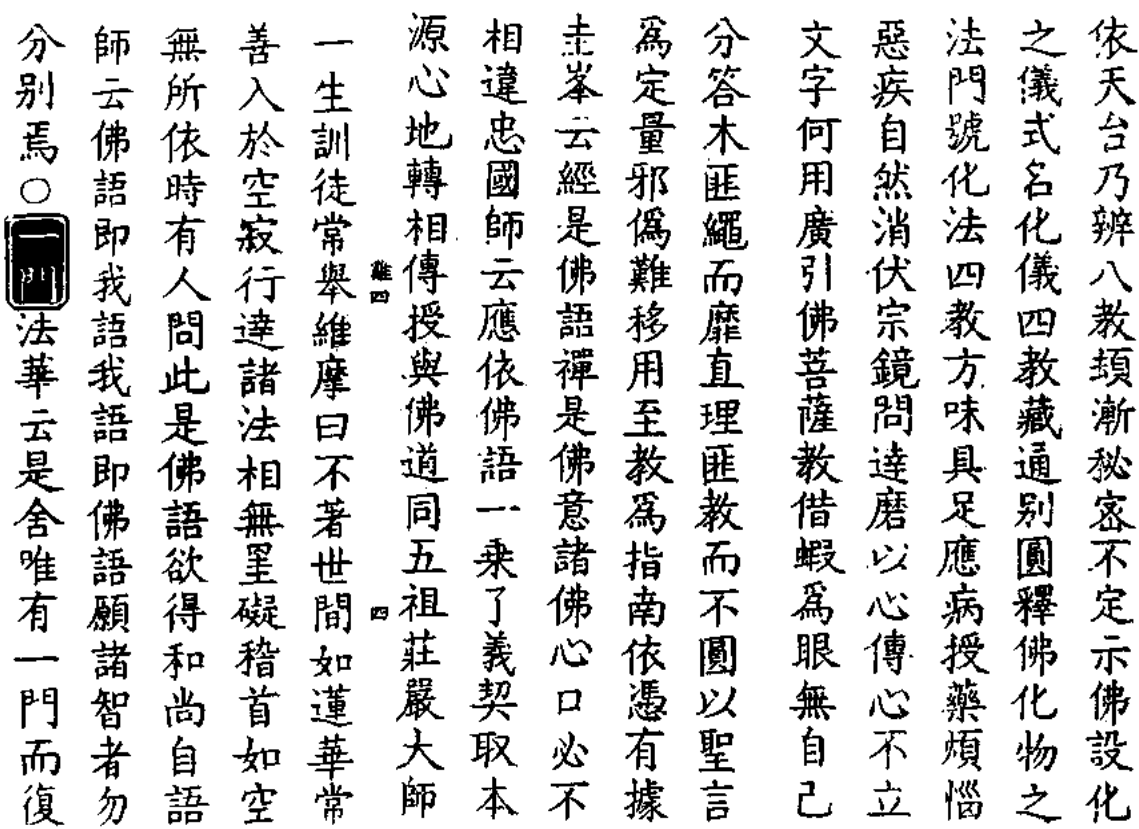 依天台乃辨八教頓漸秘密不定示佛設化
之儀式名化儀四教藏通別圓釋佛化物之
法門號化法四教方味具足應病授藥煩惱
惡疾自然消伏宗鏡問達磨以心傳心不立
文字何用廣引佛菩薩教借蝦爲眼無自己
分答木匪繩而靡直理匪教而不圓以聖言
爲定量邪僞難移用至教爲指南依憑有據
圭峯云經是佛語禪是佛意諸佛心口必不
相違忠國師云應依佛語一乘了義契取本
源心地轉相傳授與佛道同五祖莊嚴大師
雞四 四
一生訓徒常舉維摩曰不著世間如蓮華常
善入於空寂行達諸法相無罣礙稽首如空
無所依時有人問此是佛語欲得和尚自語
師云佛語即我語我語即佛語願諸智者勿
分別焉○一門法華云是舍唯有一門而復